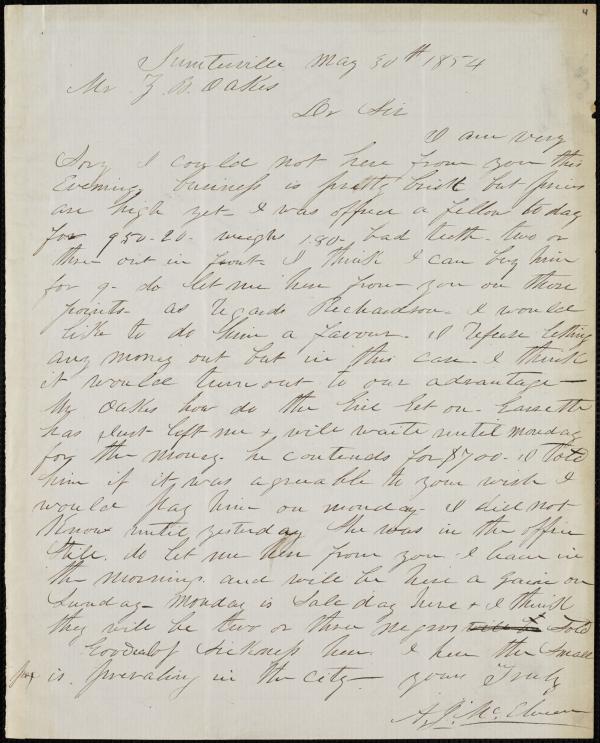 4
Sumterville May 30th 1854
Mr Z. B. Oakes
Dr Sir
I am very
Sory I could not here from you this
Evening business is pretty brisk but prices
are high yet- I was offered a fellow to day
for 950-20- weighs 180- bad teeth- two or
three out in front- I think I can buy him
for 9- do let me hear from you on those
points- as regards Richardson- I would
like to do him a favour- I refuse letting
any money out but in this case- I think
it would turn out to our advantage-
Mr Oakes how do the Girl Get on-
has Just left me & will waite until monday
for the money- he contends for $700- I told
him if it was agreeable to your wish I
would pay him on monday- I did not
Know until yesterday She was in the office
Still. do let me hear from you- I leave in
the morning. and will be here a gain on
Sunday- Monday is Sale day here & I think
they will be two or three negros Sold
Good of Sickness here. I hear the Small
pox is prevaling in the city- yours Truly
A. J. McElveen